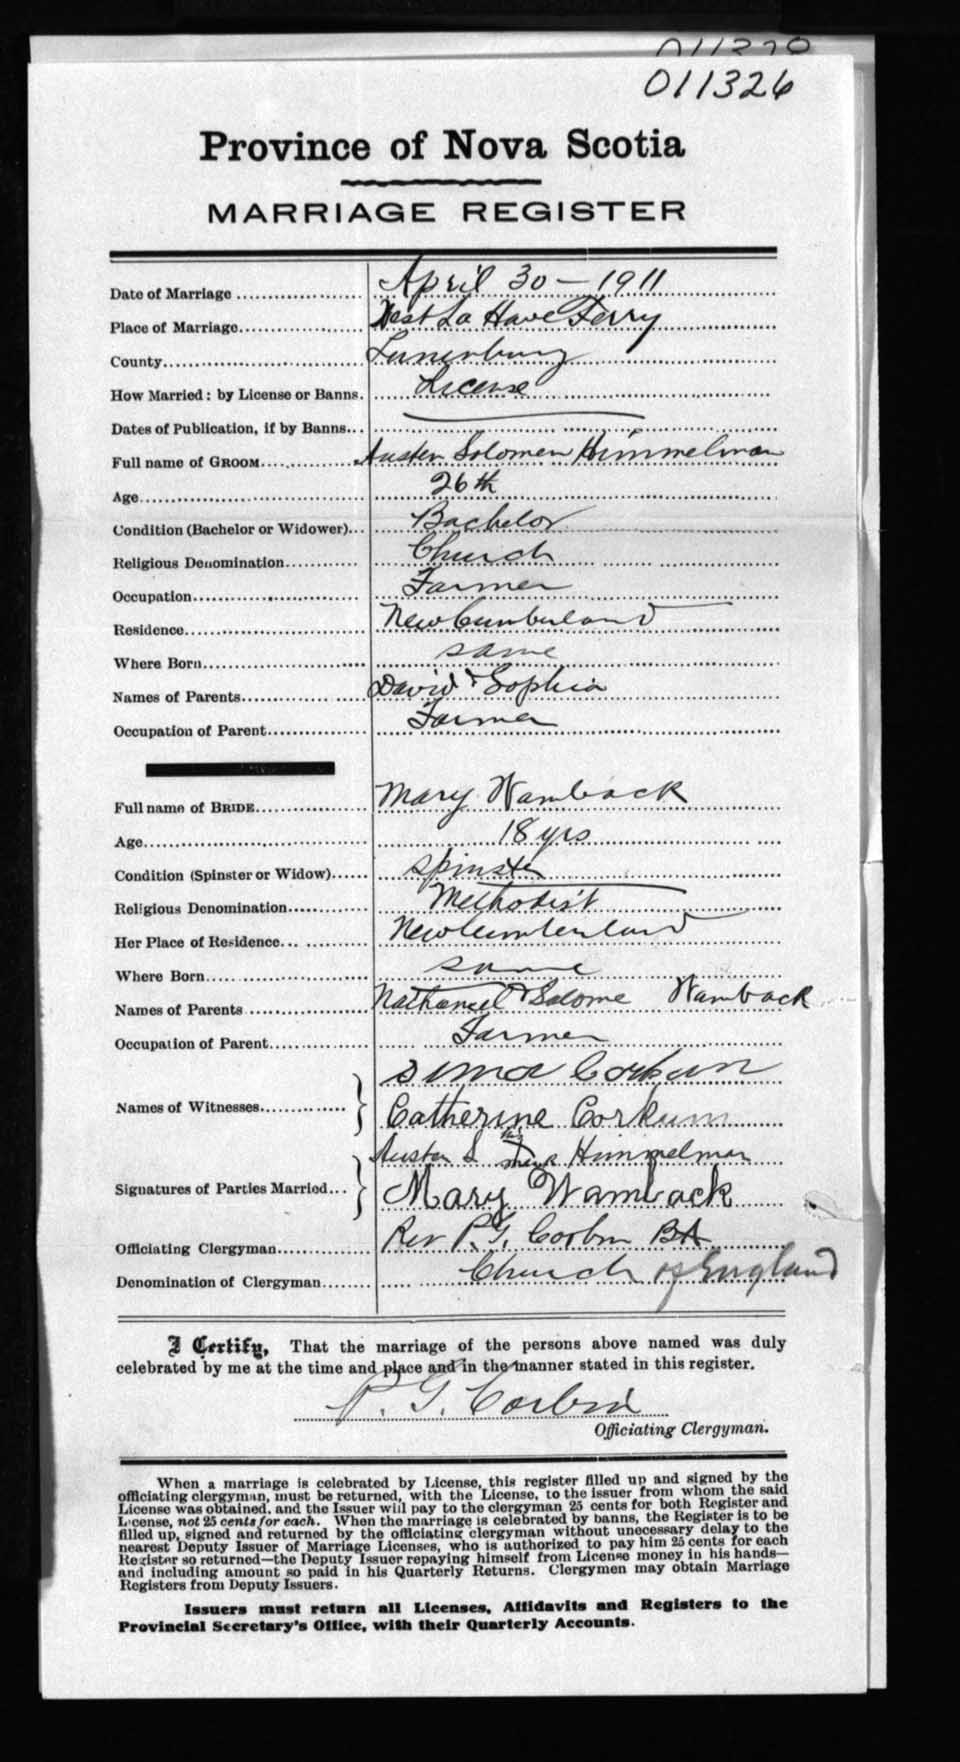 011326
Province of Nova Scotia
MARRIAGE REGISTER
Date of Marriage April 30 – 1911
Place of Marriage West La Have Ferry
County Lunenburg
How Married: by License or Banns. License
Dates of Publication, if by Banns
Full name of GROOM Austen Solomen Himmelman
Age 26th
Condition (Bachelor or Widower) Bachelor
Religious Denomination Church
Occupation Farmer
Residence New Cumberland
Where Born same
Names of Parents David & Sophia
Occupation of Parent Farmer
Full name of BRIDE Mary Wamback
Age 18 yrs
Condition (Spinster or Widow) Spinster
Religious Denomination Methodist
Her Place of Residence New Cumberland
Where Born same
Names of Parents Nathaniel & Salome Wamback
Occupation of Parent Farmer
Corkum
Names of Witnesses
Catherine Corkum
Austen S his x mark Himmelman
Signatures of Parties Married Mary Wamback
Officiating Clergyman Rev P. G. Corbin BA
Denomination of Clergyman Church of England
I Certify, That the marriage of the persons above named was duly
celebrated by me at the time and place and in the manner stated in this register.
P. G. Corbin
Officiating Clergyman.
When a marriage is celebrated by License, this register filled up and signed by the
officiating clergyman, must be returned, with the License, to the issuer from whom the said
License was obtained, and the Issuer will pay to the clergyman 25 cents for both Register and
License, not 25 cents for each. When the marriage is celebrated by banns, the Register is to be
filled up, signed and returned by the officiating clergyman without unnecessary delay to the
nearest Deputy Issuer of Marriage Licenses, who is authorized to pay him 25 cents for each
Register so returned—the Deputy Issuer repaying himself from License money in his hands—
and including amount so paid in his Quarterly Returns. Clergymen may obtain Marriage
Registers from Deputy Issuers.
Issuers must return all Licenses, Affidavits and Registers to the
Provincial Secretary's Office, with their Quarterly Accounts.